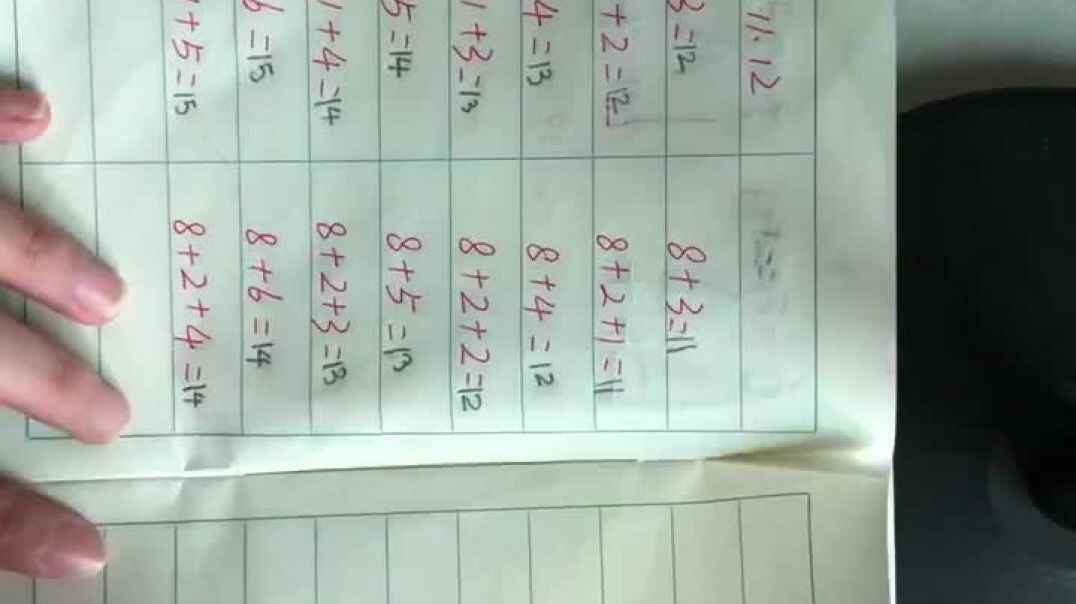 11.12
3=12 8+3=11
+2=12 8+2+1=11
4=13 8+4=12
1+3=13 8+2+2=12
5=14 8+5=13
1+4=14 8+2+3=13
6=15 8+6=14
+5=15 8+2+4=14